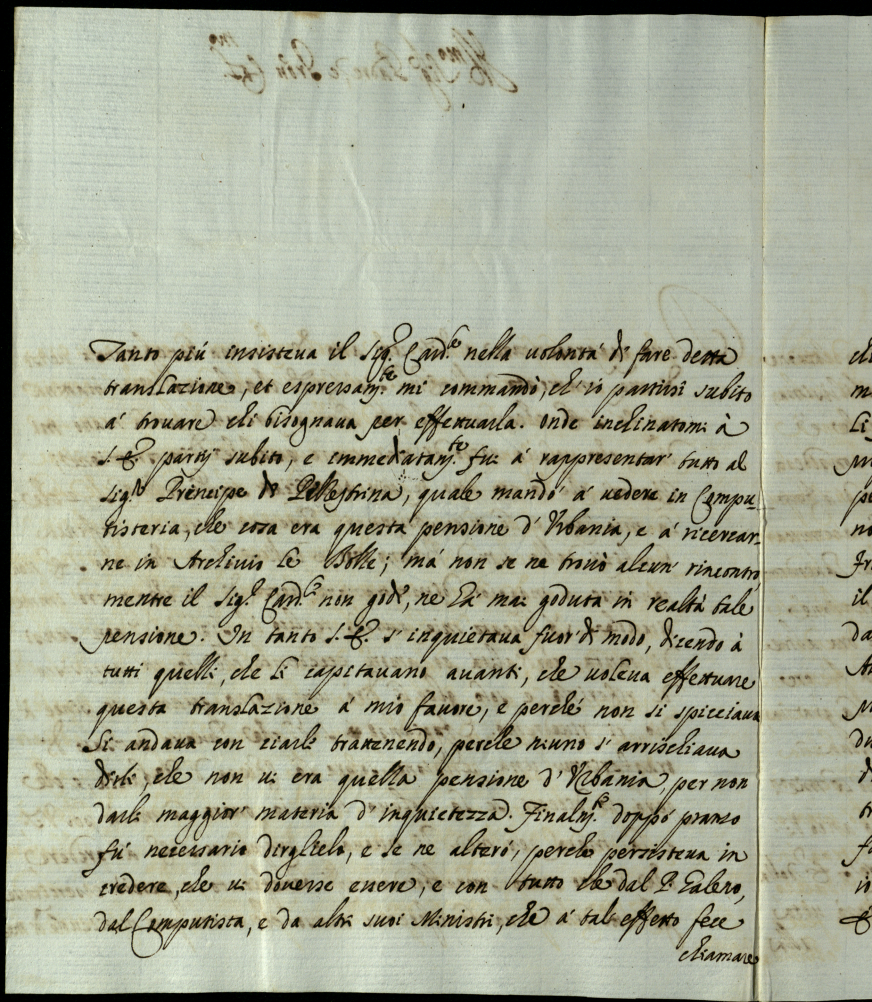 Tanto più insisteva il Sig.r Card.le nella uolontà di fare detta
translazione, et espressam.te mi commandò, ch' io partissi subito
à trouare chi bisognaua per effettuarla. Onde inchinatomi à
S. E. partij subito, e immediatam.te fui à rappresentar' tutto al
Sig.r Prencipe di Pellestrina, quale mandò à uedere in Compu-
tisteria, che cosa era questa pensione d' Vrbania, e à ricercar-
ne in Archiuio le Bolle; mà non se ne trouò alcun' rincontro,
mentre il Sig.r Card.le non gode, ne hà mai goduta in realtà tale
pensione. In tanto S. E. s' inquietaua fuor' di modo, dicendo à
tutti quelli, che li capitauano auanti, che uoleua effettuare
questa translazione à mio fauore, e perché non si spicciaua
si andaua con ciarle trattenendo, perche niuno s' arrischiaua
dirli, che non ui era quella pensione d' Vrbania, per non
darli maggior' materia d' inquietezza. Finalm.te doppò pranso
fù necessario dirglielo, e se ne alterò, perche persisteua in
credere, che ui douesse essere, e con tutto che dal P.
dal Computista, e da altri suoi Ministri, che à tal' effetto fece
chiamare